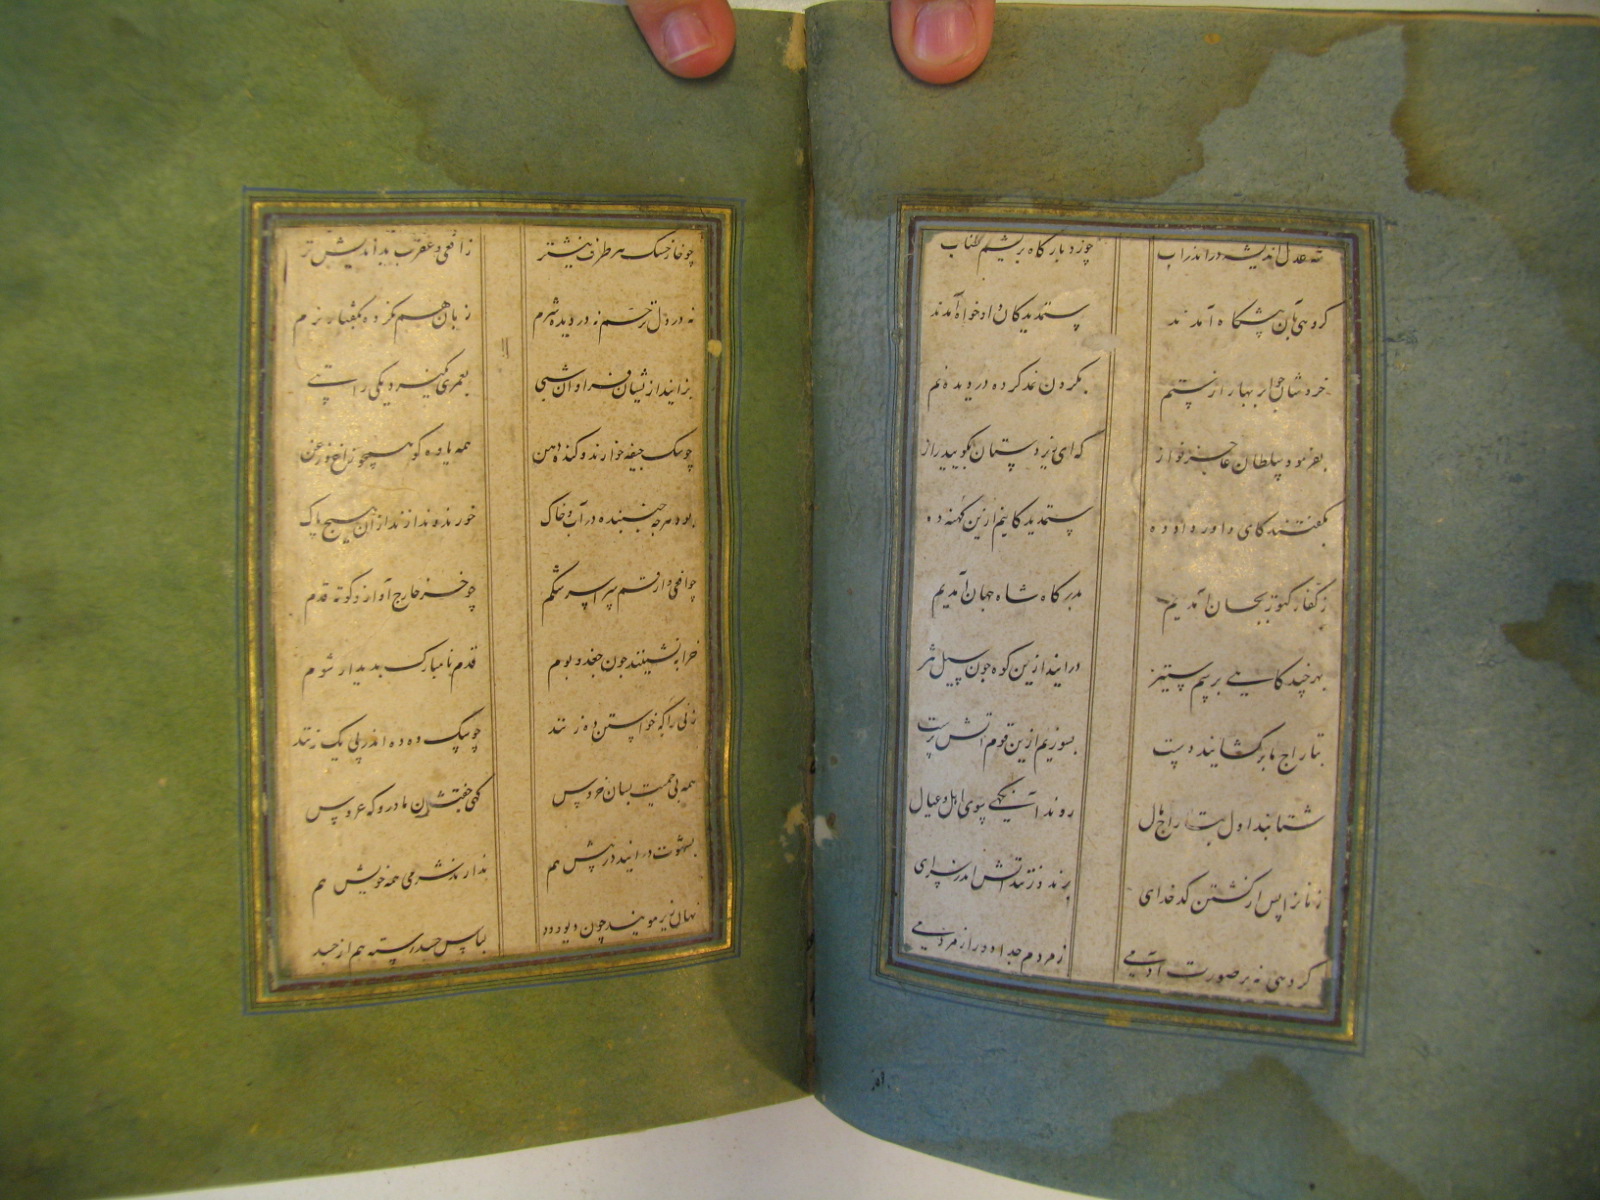 شه عدل اندیشه در اندراب چو زد بارگاه بریشم طناب
گروهی بآن پیشگاه آمدند ستمدیدگان دادخواه آمدند
خروشان چو ابر بهار از ستم بگردون غو کرده در دیده نم
بفرمود سلطان عاجز نواز که ای زیردستان بگویید راز
بگفتند کای داور داد ده ستمدیدگانیم ازین کهنه ده
ز کفار کتور بجان آمدیم بدرگاه شاه جهان آمدیم
بهر چند گاهی برسم ستیز درایند ازین کوه چون سیل تیز
بتاراج ما برگشایند دست بسوزیم ازین قوم آتش پرست
شتابند اول بتاراج مال روند آنگهی سوی اهل و عیال
زنانرا پس از کشتن کدخدای برند و زنند آتش اندر سرای
گروهی نه بر صورت آدمی ز مردم جدا و دور از مردمی
چو خار خسک هر طرف نیشتر ز افعی و عقرب بد اندیش تر
نه در دل ترحم نه در دیده شرم زبان هم نکرده بگفتار نرم
بزایند ازیشان فراوان شبی بعمری نمیرد یکی را تبی
چو سگ جیفه خوارند و گنده دهن همه یاوه گو همچو زاغ و زغن
بود هرچه جنبنده در آب و خاک خورند و ندارند از آن هیچ باک
چو افعی دارقم سراسر شکم چو خر خارج آواز و کوته قدم
خرابه نشینند چون جغد و بوم قدم نامبارک بدیدار شوم
زنی را که خواستن ده زنند چو سگ ده ده اندر پی یک زنند
همه بی حمیت بسان خروس گهی جفتشان مادر و گه عروس
بشهوت درایند در پیش هم ندارند شرمی همه خویش هم
نهان زیر مویند چون دیو و دد لباس جسد رسته هم از جسد